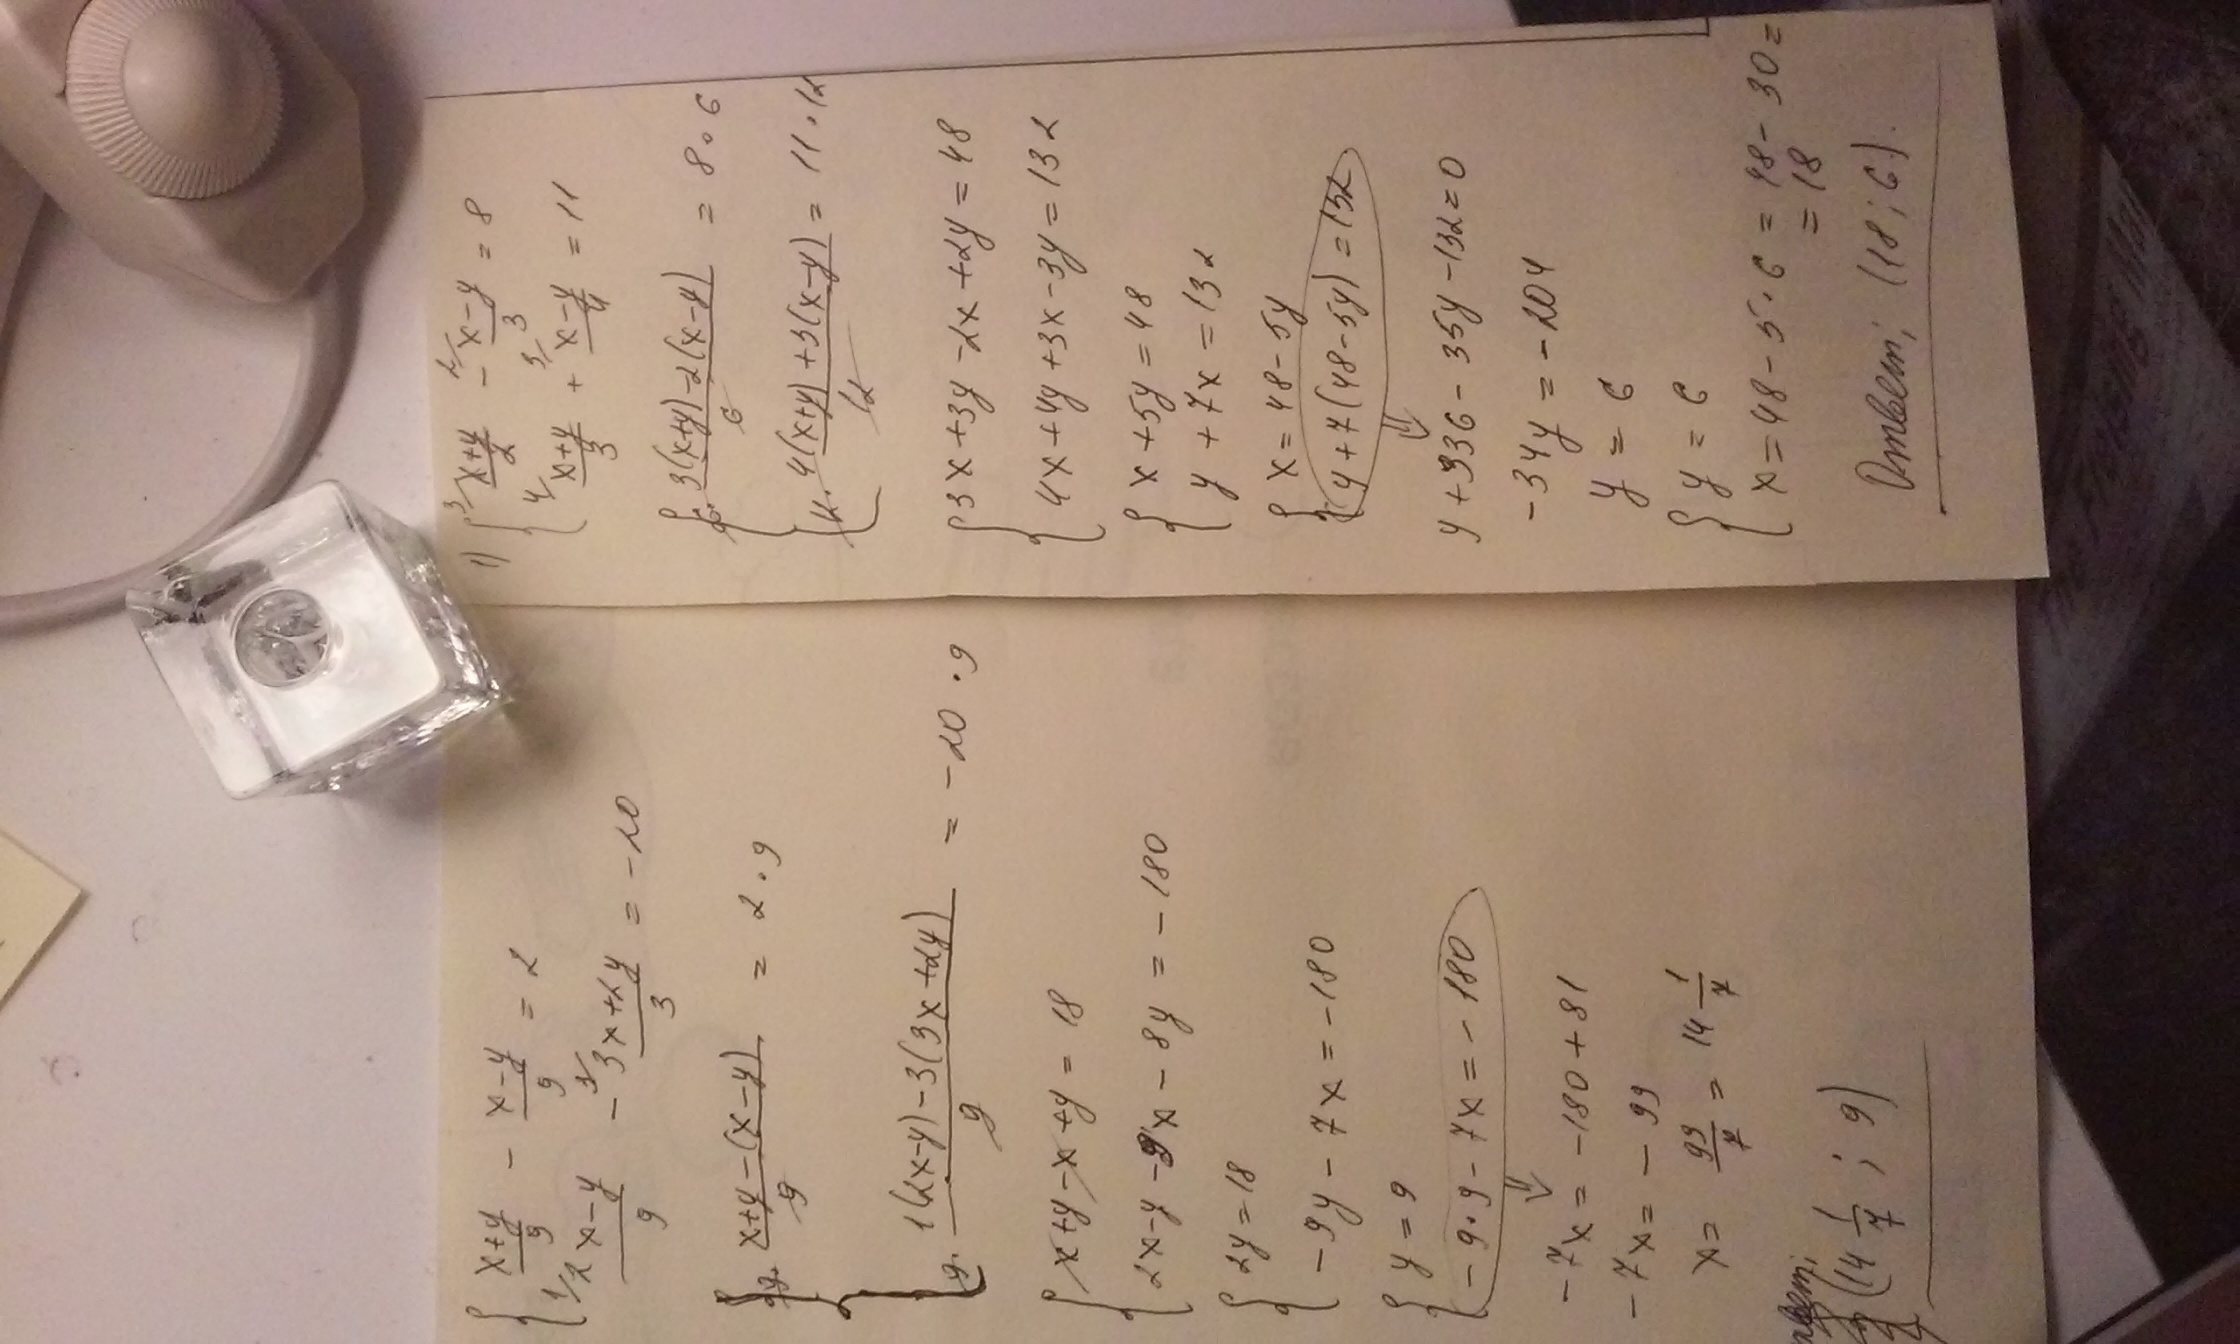 1) { ³⁄ (x+y)/2 - ²⁄ (x-y)/3 = 8
⁴⁄ (x+y)/3 + ³⁄ (x-y)/4 = 11
{ 6· (3(x+y)-2(x-y))/6 = 8·6
{ 12· (4(x+y)+3(x-y))/12 = 11·12
{ 3x+3y-2x+2y=48
4x+4y+3x-3y=132
{ x+5y=48
y+7x=132
{ x=48-5y
y+7(48-5y)=132
⇓
y+336-35y-132=0
-34y=-204
y=6
{ y=6
x=48-5·6=48-30=
=18
Ответ: (18; 6).
{ (x+y)/9 - (x-y)/9 = 2
¹⁄ (2x-y)/9 - ³⁄ (3x+2y)/3 = -20
{ 9· (x+y-(x-y))/9 = 2·9
9· (1(2x-y)-3(3x+2y))/9 = -20·9
{ x+y-x+y=18
2x-y-9x-8y=-180
{ 2y=18
-9y-7x=-180
{ y=9
-9·9-7x=-180
⇓
-7x=-180+81
-7x=-99
x= 99/7 = 14 1/7
Ответ:
(14 1/7; 9)